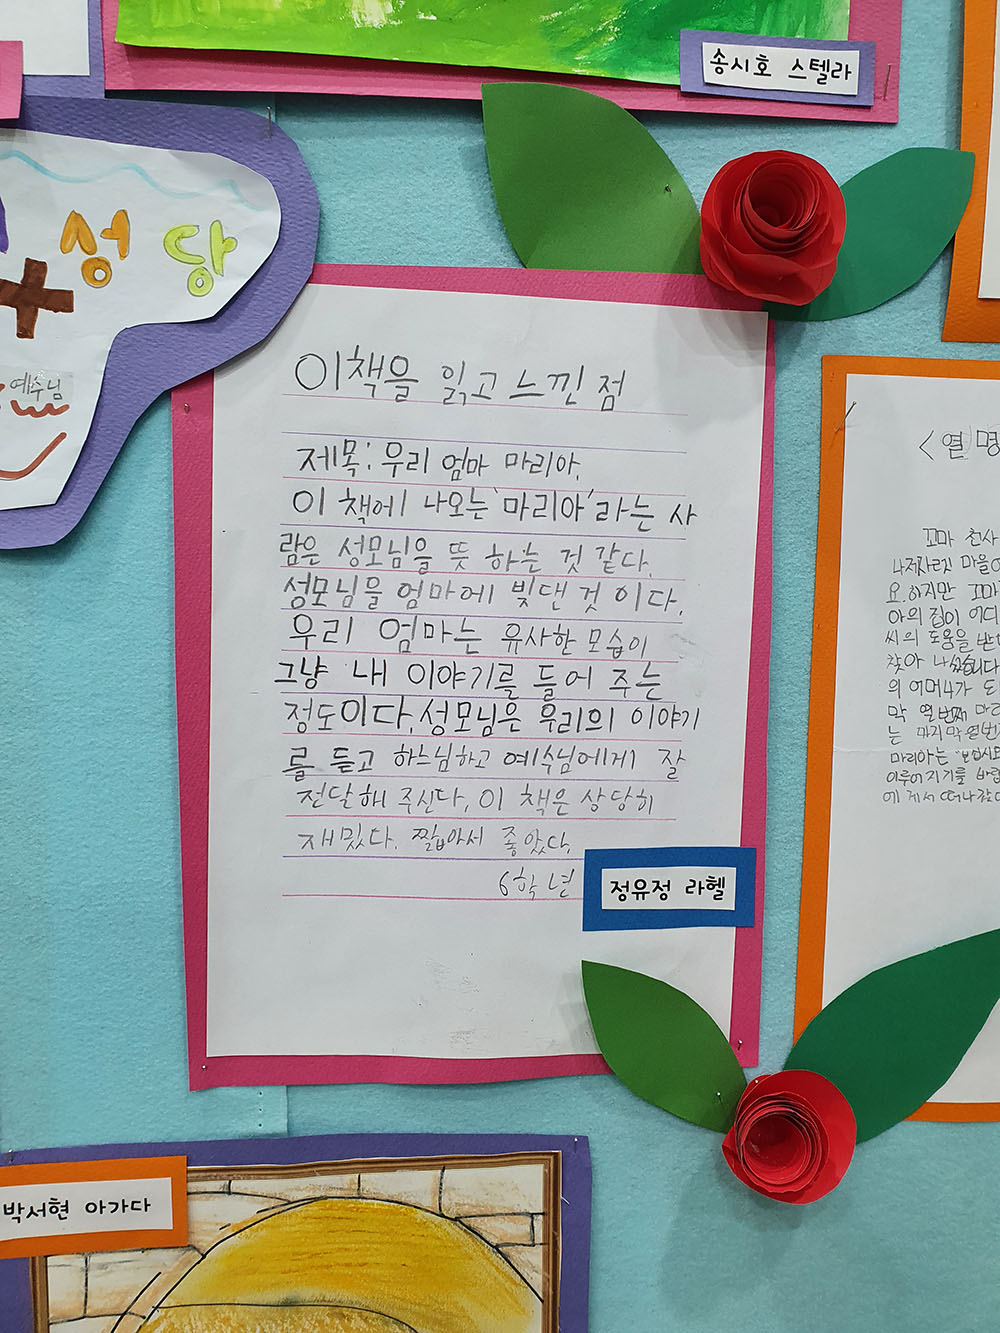 송시호 스텔라
성당
예수님
이책을 읽고 느낀점
제목: 우리 엄마 마리아.
이 책에 나오는 '마리아'라는 사
람은 성모님을 뜻 하는 것 같다.
성모님을 엄마에 빛댄것 이다.
우리 엄마는 유사한 모습이
그냥 내 이야기를 들어 주는
정도이다. 성모님은 우리의 이야기
를 듣고 하느님하고 예수님에게 잘
전달해 주신다. 이 책은 상당히
재밌다. 짧아서 좋았다.
6학년
정유정 라헬
<열 명
꼬마 천사
마을이
요. 하지만 꼬마
아의 집이 어디
씨의 도움을 받
찾아 나섰습니다
의 어머니가 되
막 열번째 마리
는 마지막 열번
마리아는
이루어지기를 바랍
에게서 떠나갔다
박서현 아가다